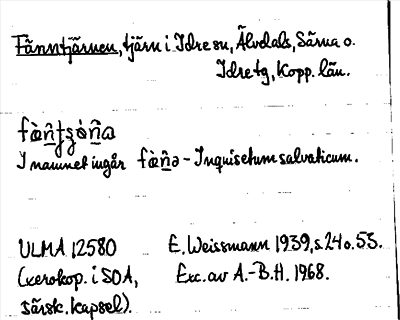 Fänntjärnen, tjärn i Idre sn, Älvdals, Särna o.
Idre tg, Kopp. län.
I namnet ingår fὲn̠ə - Inquisetum salvaticum.
ULMA 12580 E. Weissmann 1939, s. 24 o. 53.
(xerokop. i SOA, Exc. av A.-B.H. 1968.
särsk. kapsel).